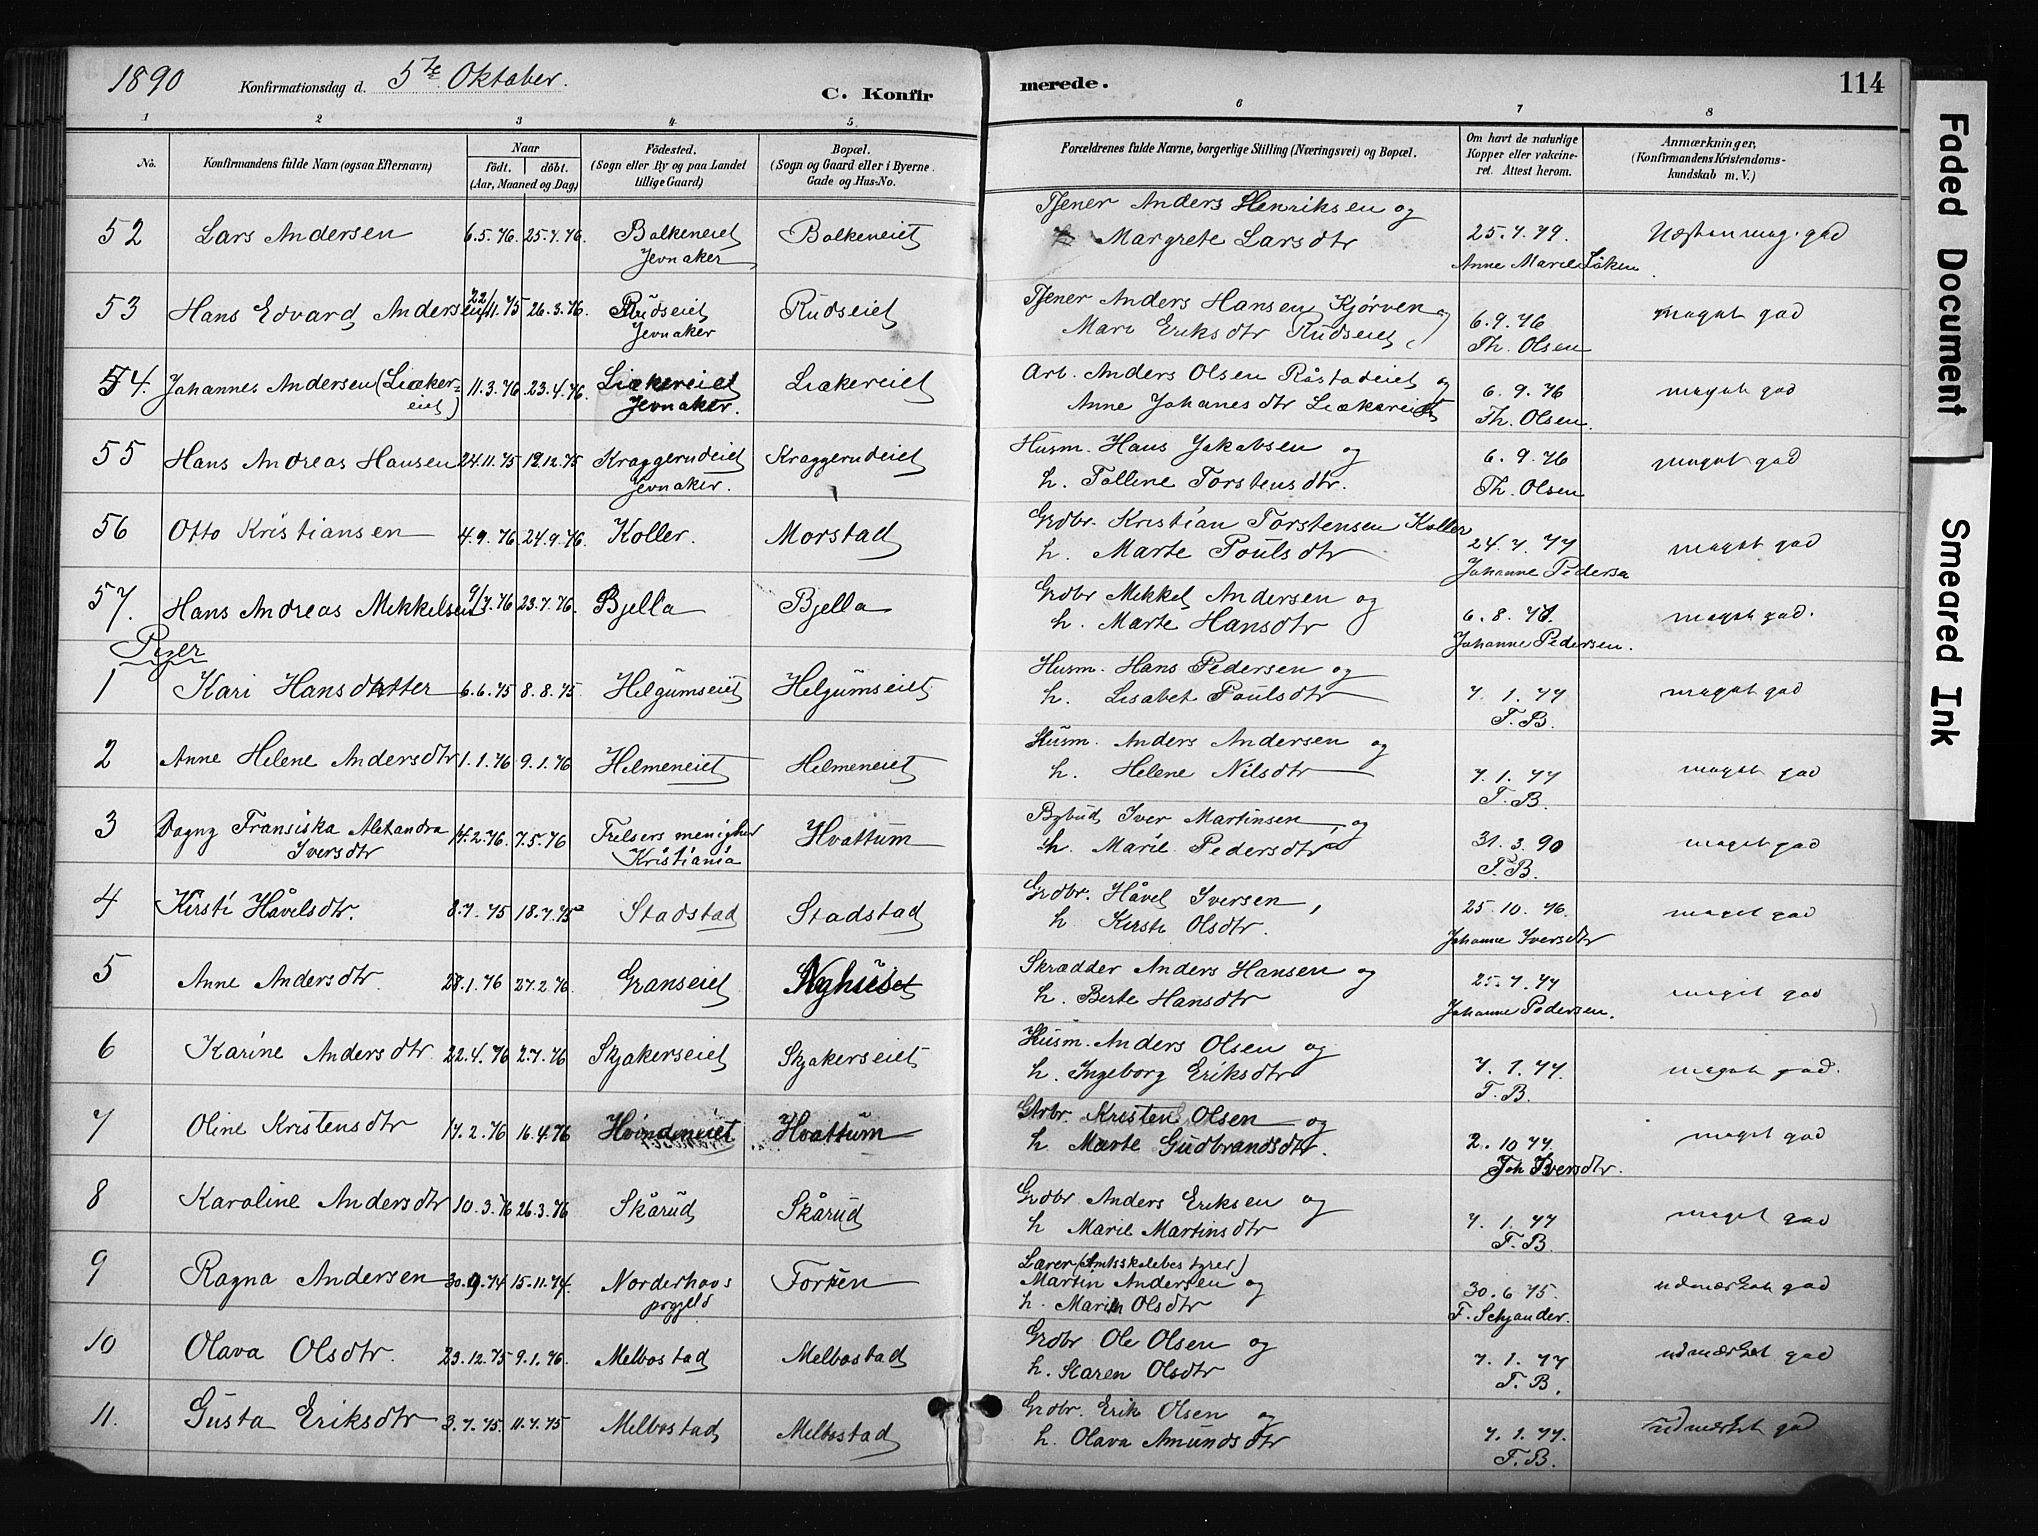 1890 Konfirmationsdag d. 5te Oktober. C. Konfirmerede. 114
1 2 3 4 5 6 7 8
No. Konfirmandens fulde Navn (ogsaa Efternavn) Naar født. døbt. (Aar, Maaned og Dag) Fødested. (Sogn eller By og paa Landet tillige Gaard) Bopæl. (Sogn og Gaard eller i Byerne Gade og Hus-No. Forældrenes fulde Navne, borgerlige Stilling (Næringsvei) og Bopæl. Om havt de naturlige Kopper eller vakcineret. Attest herom. Anmærkninger, (Konfirmandens Kristendomskundskab m. V.)
52 Lars Andersen 6.5.76. 25.7.76. Balkeneiet Jevnaker Balkeneiet Tjener Anders Henriksen og Margrete Larsdtr 25.7.79. Anne Marie Løken. Næsten meg. god
53 Hans Edvard Andersen 22/11.75 26.3.76. Rudseiet Jevnaker Rudseiet Tjener Anders Hansen Kjørven og Mari Eriksdtr Rudseiet 6.9.76 Th. Olsen meget god
54. Johannes Andersen (Liækereiet) 11.3.76 23.4.76. Liækereiet Jevnaker. Liækereiet Arb. Anders Olsen Råstadeiet og Anne Johanesdtr Liækereiet 6.9.76 Th. Olsen. meget god
55 Hans Andreas Hansen 24.11.75 12.12.75 Kraggerudeiet Jevnaker. Kraggerudeiet Husm. Hans Jakobsen og h. Talline Torstensdtr. 6.9.76 Th. Olsen meget god
56 Otto Kristiansen 4.9.76 24.9.76. Koller. Morstad Grdbr. Kristian Torstensen Koller h. Marte Poulsdtr 24.7.77 Johanne Pedersen meget god
57. Hans Andreas Mikkelsen 9/7.76 23.7.76. Bjella Bjella Grdbr Mikkel Andersen og h. Marte Hansdtr 6.8.77. Johanne Pedersen. meget god.
Piger
1 Kari Hansdatter 6.6.75 8.8.75. Helgumseiet Helgumseiet Husm. Hans Pedersen og h. Lisabet Poulsdtr 7.1.77 F.B. meget god
2 Anne Helene Andersdtr 1.1.76 9.1.76 Helmeneiet Helmeneiet Husm. Anders Andersen og h. Helene Nilsdtr 7.1.77 F.B. meget god
3 Dagny Fransiska Alexandra Iversdtr 14.2.76. 7.5.76 Frelsers menighed Kristiania Hvattum Bybud Iver Martinsen, og h. Marie Pedersdtr 31.3.90 F.B. meget god
4 Kirsti Håvelsdtr. 8.7.75 18.7.75 Stadstad Stadstad Grdbr. Håvel Iversen, h. Kirsti Olsdtr. 25.10.76. Johanne Iversdtr meget god
5 Anne Andersdtr 28.1.76 27.2.76. Granseiet Nyhuset Skrædder Anders Hansen og h. Berte Hansdtr 25.7.77 Johanne Pedersen. meget god
6 Karine Andersdtr 22.4.76 2.7.76 Skjakerseiet Skjakerseiet Husm. Anders Olsen og h. Ingeborg Eriksdtr 7.1.77. F.B. meget god.
7 Oline Kristensdtr 17.2.76 16.4.76 Hvindeneiet Hvattum Kristen Olsen og h. Marte Gudbrandsdtr. 2.10.77 Joh Iversdtr. meget god
8 Karoline Andersdtr 10.3.76 26.3.76 Skårud Skårud Grdbr Anders Eriksen og h Marie Martinsdtr 7.1.77 F.B. meget god
9 Ragna Andersen 30.9.74 15.11.74. Norderhovs prgjeld Lærer (Amtsskolebestyrer) Martin Andersen og h. Maria Olsdtr 30.6.75. F. Schjander. udmærket god
10 Olava Olsdtr. 23.12.75 9.1.76. Melbostad Melbostad Grdbr Ole Olsen og h. Karen Olsdtr 7.1.77 F.B. udmærket god
11. Gusta Eriksdtr 3.7.75. 11.7.75 Melbostad Melbostad Grdbr. Erik Olsen og h. Olava Amundsdtr 7.1.77. F.B. udmærket god
Faded Document
Smeared Ink